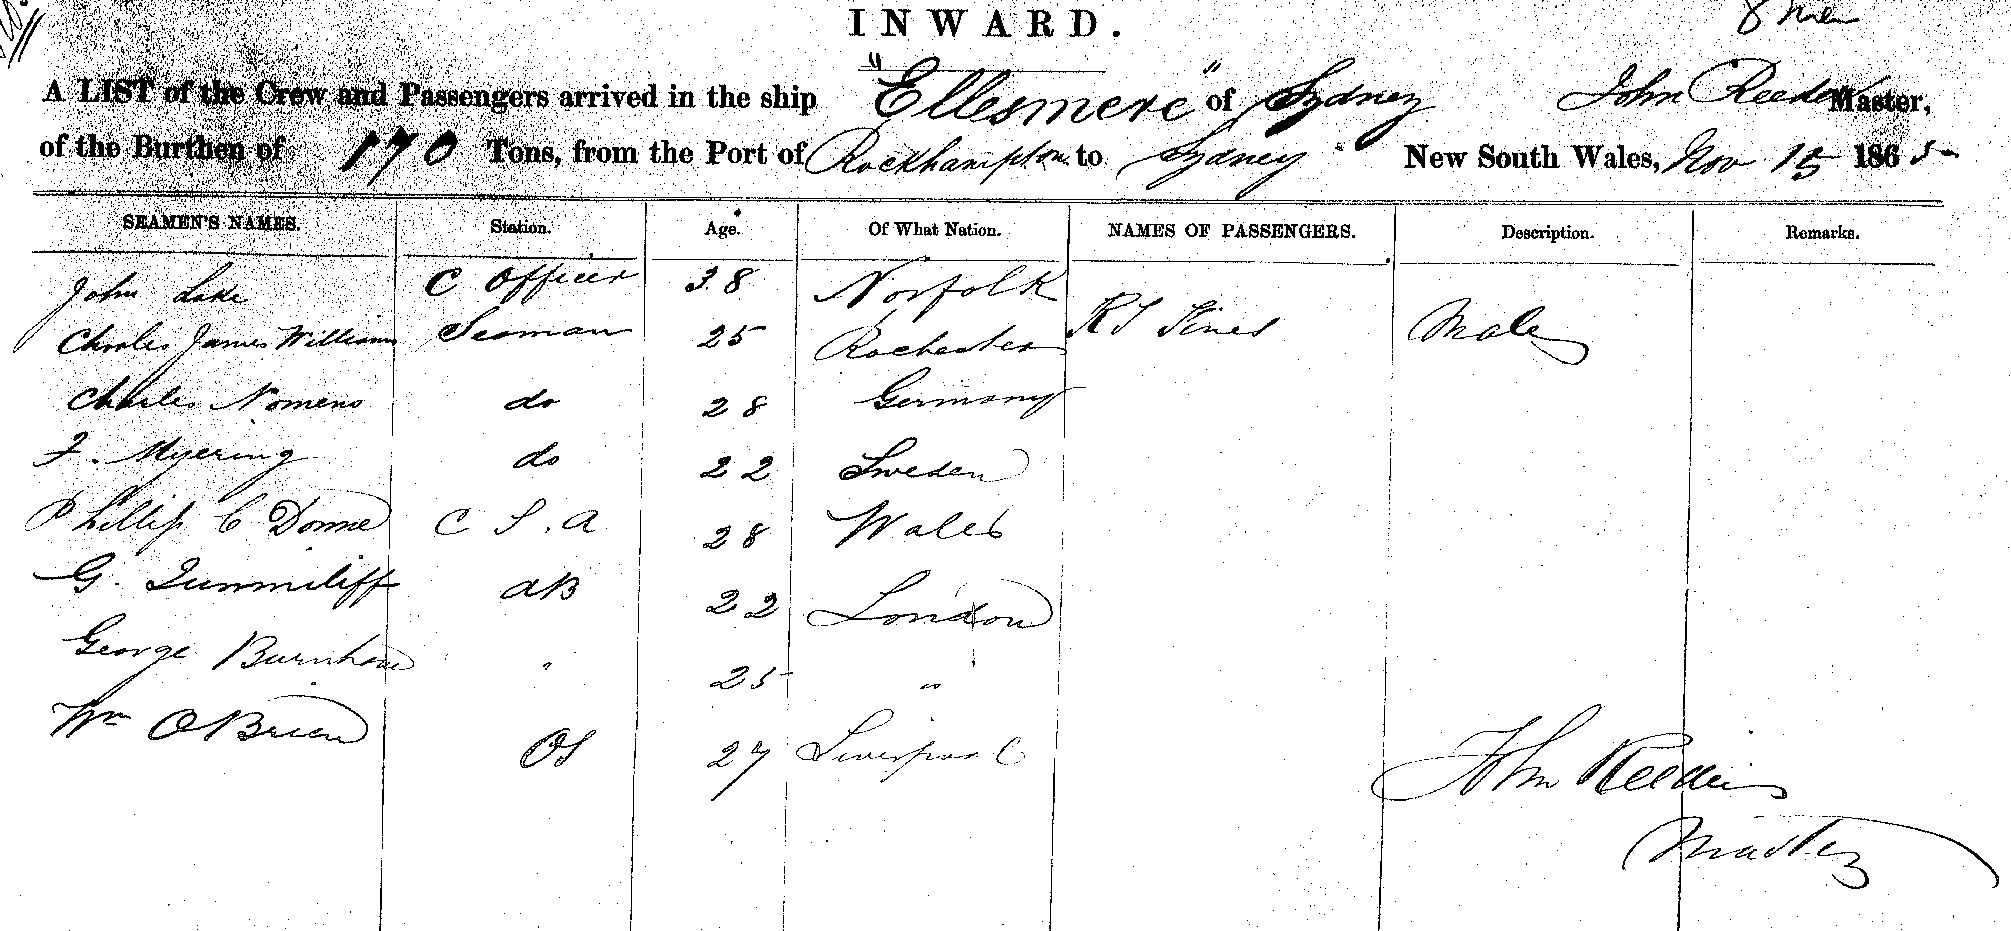 8 Men
INWARD.
A LIST of the Crew and Passengers arrived in the ship "Ellesmere" of Sydney John Master,
of the Burthen of 170 Tons, from the Port of Rockhampton to Sydney New South Wales, Nov 15 1865
SEAMEN'S NAMES. Station. Age. Of What Nation. NAMES OF PASSENGERS. Description. Remarks.
John Lake C Officer 38 Norfolk
Charles James Williams Seaman 25 Rochester R S Male
Charles do 28 Germany
F. Myering do 22 Sweden
Phillip C Donne C S. A 28 Wales
G. AB 22 London
George Burnham " 25 "
Wm OBrien OS 27 Liverpool
John
Master